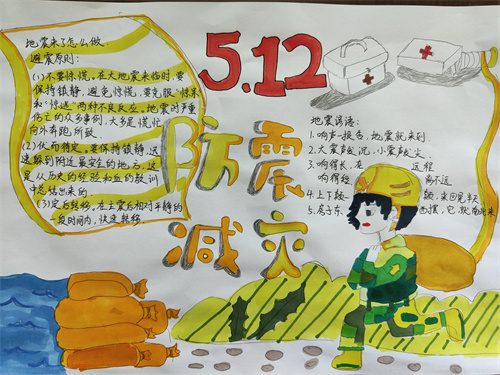 5.12
防震
减灾
地震来了怎么做
避震原则:
(1)不要惊慌。在大地震来临时,要
保持镇静,避免惊慌,要克服"惊呆
和"惊逃"两种不良反应。地震时严重
伤亡的众多事例,大多是慌忙
向外奔跑所致.
(2)伏而待定。要保持镇静,迅
速躲到附近最安全的地方,这
是从历史的经验和血的教训
中总结出来的
(3)定后转移。在主震后相对平静的
一段时间内,快速转移.
地震谚语:
1.响声一报告,地震就来到.
2.大震声发沉,小震声发尖.
3.响得长,在 远程
响得短 离不远
4.上下颠一 颠,来回晃半天
5.房子东 西摆,它就南北来